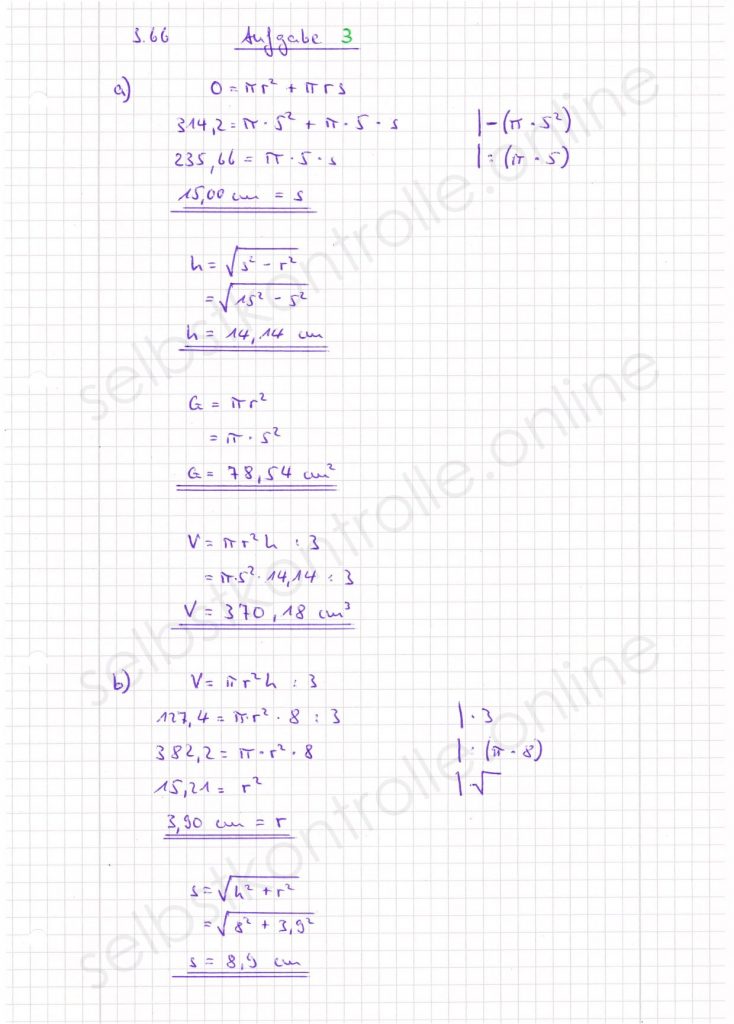 S.66 Aufgabe 3
a) O = πr² + πrs
314,2 = π · 5² + π · 5 · s |-(π · 5²)
235,66 = π · 5 · s |:(π · 5)
15,00 cm = s
h = √s² - r²
= √15² - 5²
h = 14,14 cm
G = πr²
= π · 5²
G = 78,54 cm²
V = πr²h : 3
= π·5²·14,14 : 3
V = 370,18 cm³
b) V = πr²h : 3
127,4 = π·r² · 8 : 3 |· 3
382,2 = π·r² · 8 |: (π · 8)
15,21 = r² |√
3,90 cm = r
s = √h² + r²
= √8² + 3,9²
s = 8,9 cm
selbstkontrolle.online
selbstkontrolle.online
selbstkontrolle.online